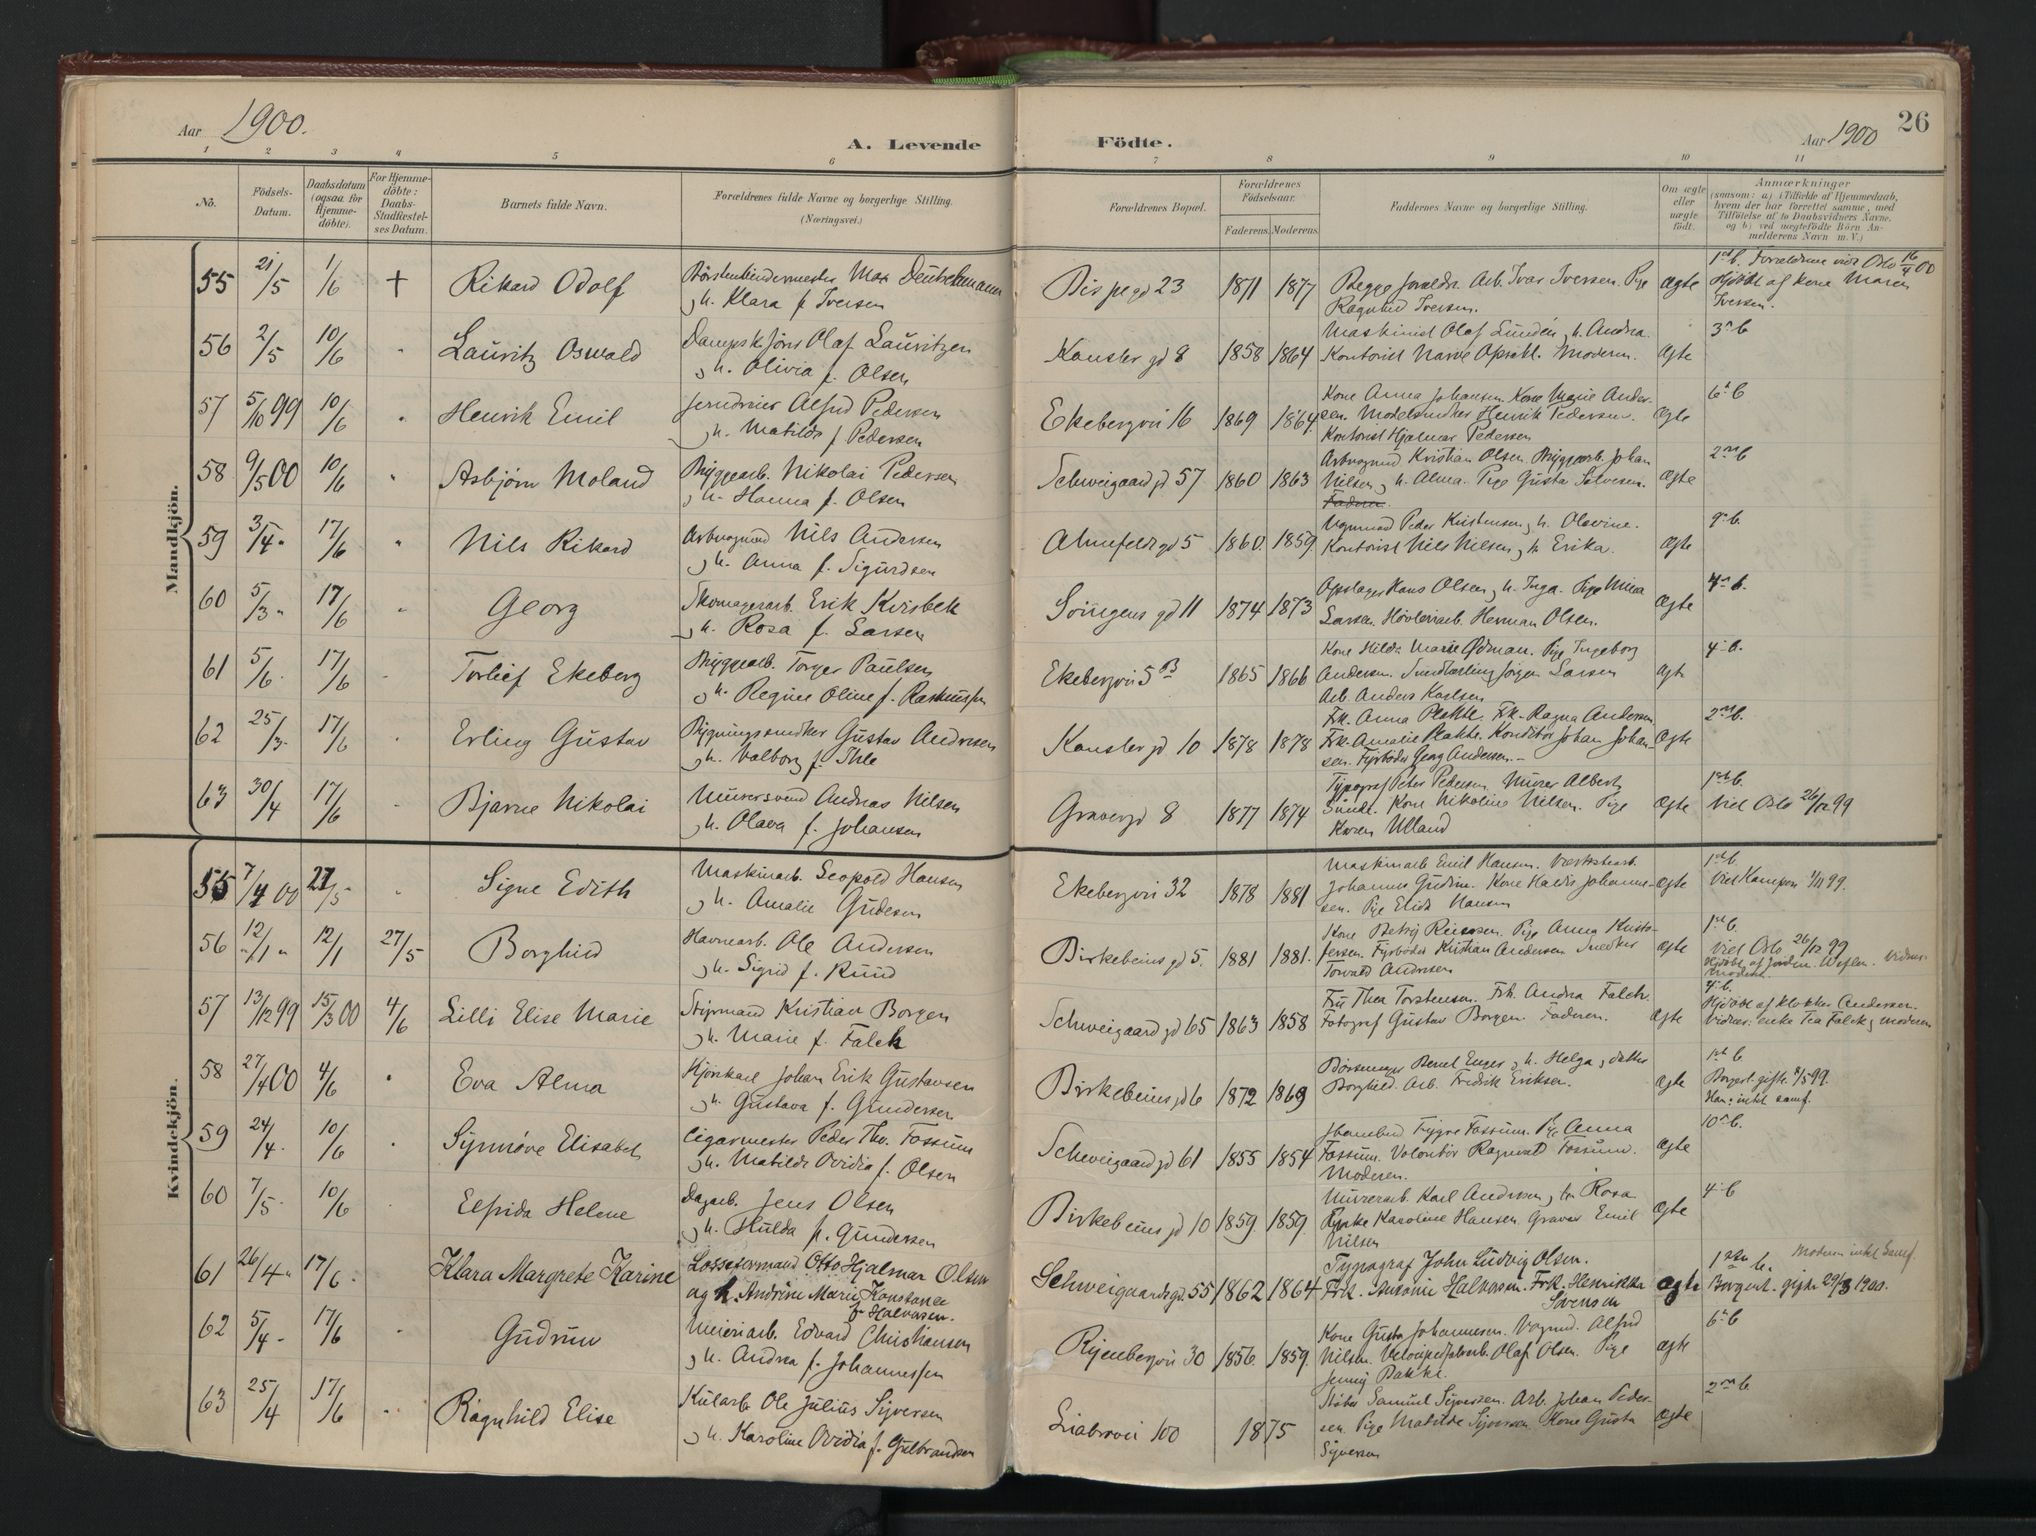 Aar 1900.
A. Levende Födte.
Aar 1900
26
1 2 3 4 5 6 7 8 9 10 11
No.
Födsels-Datum.
Daabsdatum (ogsaa for Hjemme-döbte).
For Hjemme-döbte: Daabs-Stadfæstel-ses Datum.
Barnets fulde Navn.
Forældrenes fulde Navne og borgerlige Stilling. (Næringsvei.)
Forældrenes Bopæl.
Forældrenes Födselsaar.
Faderens. Moderens.
Faddernes Navne og borgerlige Stilling.
Om ægte eller uægte födt.
Anmærkninger
(saasom: a) i Tilfælde af Hjemmedaab, hvem der har forrettet samme, med Tilföielse af to Daabsvidners Navne, og b) ved uægtefödte Börn An-melderens Navn m. V.)
Mandkjön.
55 21/5 1/6 + Rikard Odolf
Börstenbindermester Max Deutschmann
og h. Klara f. Iversen
Bispegd 23 1871 1877
Begge foreldre. Arb. Ivar Iversen. Pige
Ragnhild Iversen.
Ægte
1ste b. Forældrene viet Oslo 16/4 00
Hjdöbt af kone Maren
Iversen.
56 2/5 10/6 " Lauritz Oswald
Olaf Lauritzen
og h. Olivia f. Olsen
Kansler gd 8 1858 1864
Maskinist Olaf Lundén og h. Andrea.
Kontorist Moderen.
Ægte
3. b
57 5/10 99 10/6 " Henrik Emil
Jerndreier Alfred Pedersen
og h. Matilde f Pedersen
Ekebergvei 16 1869 1864
Kone Anna Johansen. Kone Marie Ander-
sen. Modelsnedker Henrik Pedersen.
Kontorist Hjalmar Pedersen
Ægte
6. b
58 9/5 00 10/6 " Asbjörn Moland
Bryggearb. Nikolai Pedersen
og h. Hanna f. Olsen
Schweigaard gd 57 1860 1863
Arbmand Kristian Olsen. Bryggearb. Johan
Nilsen og h. Alma. Pige Gusta
Faderen.
Ægte
2den b
59 3/4 " 17/6 " Nils Rikard
Nils Andersen
og h. Anna f. Sigurdsen
Almefeldts gd 5 1860. 1859.
Peder Kristensen og h. Olavine.
Kontorist Nils Nilsen og h Erika.
Ægte
9. b.
60 5/3 " 17/6 " Georg
Skomagerarb. Erik Kvisbek
og h. Rosa f. Larsen
gd 11 1874 1873
Hans Olsen og h. Inga. Pige Mina
Larsen. Høvleriarb. Herman Olsen.
Ægte
4. b.
61 5/6. 17/6 Torleif Ekeberg
Bryggearb. Torger Paulsen
og h. Regine Oline f. Rasmussen
Ekebergvei 5 B 1865 1866
Kone Hilda Marie Ödman. Pige Ingeborg
Andersen. Jörgen Larsen
Arb. Anders Karlsen
Ægte
4. b.
62 25/3 17/6 Erling Gustav
Bygningssnedker Gustav Andresen
og h. Valborg f. Ihle
Kansler gd 10 1878 1878
Frk. Anna Plahte. Frk. Ragna Andersen.
Frk. Amalie Plahte. Konditor Johan Johan-
sen. Fyrböder Georg Andersen.
Ægte
2den b.
63 30/4 17/6 Bjarne Nikolai
Murersvend Andreas Nilsen
og h. Olava f. Johansen
Gravergd 8 1877 1874
Typograf Peter Pedersen. Murer Albert
Sundt. Kone Nikoline Nilsen. Pige
Karen Ulland
Ægte
1ste b.
Viet Oslo 26/12 99
Kvindekjön.
55 7/4 00 27/5 " Signe Edith
Maskinarb. Leopold Hansen
og h. Amalie Gudesen
Ekebergvei 32 1878 1881
Maskinarb Emil Hansen. Værkstearb.
Johannes Gudim. Kone Johanne-
sen. Pige Elida Hansen
Ægte
1ste b.
Viet Kampen 99.
56 12/1 " 12/1 27/5 Borghild
Havnearb. Ole Andersen
og h. Sigrid f. Ruud
Birkebeins gd 5. 1881 1881.
Kone Betzy Pige Anna Kristo-
fersen. Fyrböder Kristian Andersen Snedker
Torvald Andersen
Ægte
1ste b.
Viet Oslo 26/12 99
Hjdöbt af Jordm.
Moderen
57 13/12 99 15/3 00 4/6 Lilli Elise Marie
Styrmand Kristian Borgen
og h. Marie f. Falch
Schweigaard gd 65 1863 1858
Fru Thea Torstensen. Frk. Andrea Falch.
Fotograf Gustav Borgen. Faderen.
Ægte
4. b.
Hjdöbt af klokker Andersen.
Vidner: enke Tea Falch og moderen
58 27/4 00 4/6 " Eva Alma
Johan Erik Gustavsen
og h. Gustava f. Gundersen
Birkebeins gd 6 1872 1869
Bernt Enger og h. Helga og datter
Borghild. Arb. Fredrik Eriksen.
Ægte
1ste b
Borgerl. gifte 8/5 99.
Han: intet samf.
59 24/4. 10/6 Synnöve Elisabet
Cigarmester Peder Thv. Fossum
og h. Matilde Ovidia f. Olsen
Schweigaard gd 61 1855 1854
Fossum. Pige Anna
Fossum. Volontör Ragnvald Fossum.
Moderen.
Ægte
10. b.
60 7/5. 10/6 Elfrida Helene
Dagarb. Jens Olsen
og h. Hulda f. Gundersen
Birkebeins gd 10 1859 1859.
Murerarb. Karl Andresen og h. Rosa
Karoline Hansen. Graver Emil
Nilsen
Ægte
4. b
61 26/4 " 17/6. Klara Margrete Karine
Lasseformand Otto Hjalmar Olsen
og h. Andrine Marie Konstance
f. Halvorsen.
Schweigaardsgd. 55 1862 1864
Typograf John Ludvig Olsen.
Frk. Antonie Halvorsen. Frk. Henrikka
Svensen
Ægte
1ste b. Moderen intet Samf.
Borgerl. gifte 29/3 1900.
62 5/4 - 17/6 Gudrun
Meieriarb. Edvard Christiansen
og h. Andrea f. Johannessen
Ryenbergvei 30 1856. 1859.
Kone Gusta Johannesen. Vognmd. Alfred
Nilsen. Olaf Olsen. Pige
Jenny Bakke.
Ægte
6. b
63 25/4 17/6 Ragnhild Elise
Kularb. Ole Julius Syversen
og h. Karoline Ovidia f. Gulbrandsen
Liabrovei 100 1875
Stöber Samuel Syversen. Arb. Johan Peder-
sen. Pige Matilde Syversen. Kone Gusta
Syversen
Ægte
2den b